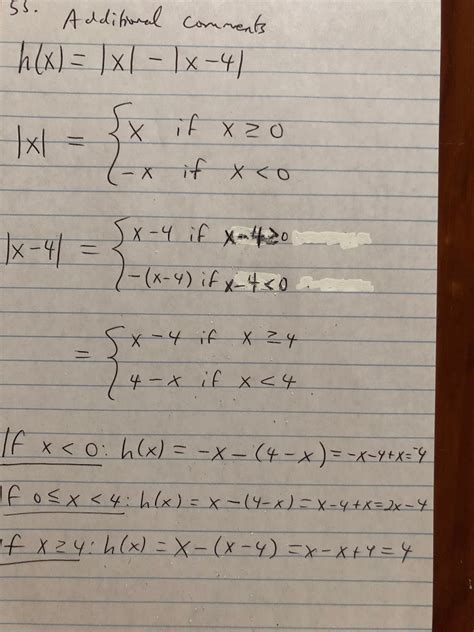 55. Additional comments
h(x) = |x| - |x-4|
|x| = { x if x ≥ 0
-x if x < 0
|x-4| = { x-4 if x-4≥0
-(x-4) if x-4<0
= { x-4 if x ≥ 4
4-x if x < 4
If x < 0: h(x) = -x-(4-x)=-x-4+x=-4
If 0≤x<4: h(x) = x-(4-x)=x-4+x=2x-4
If x≥4: h(x) = x-(x-4)=x-x+4=4